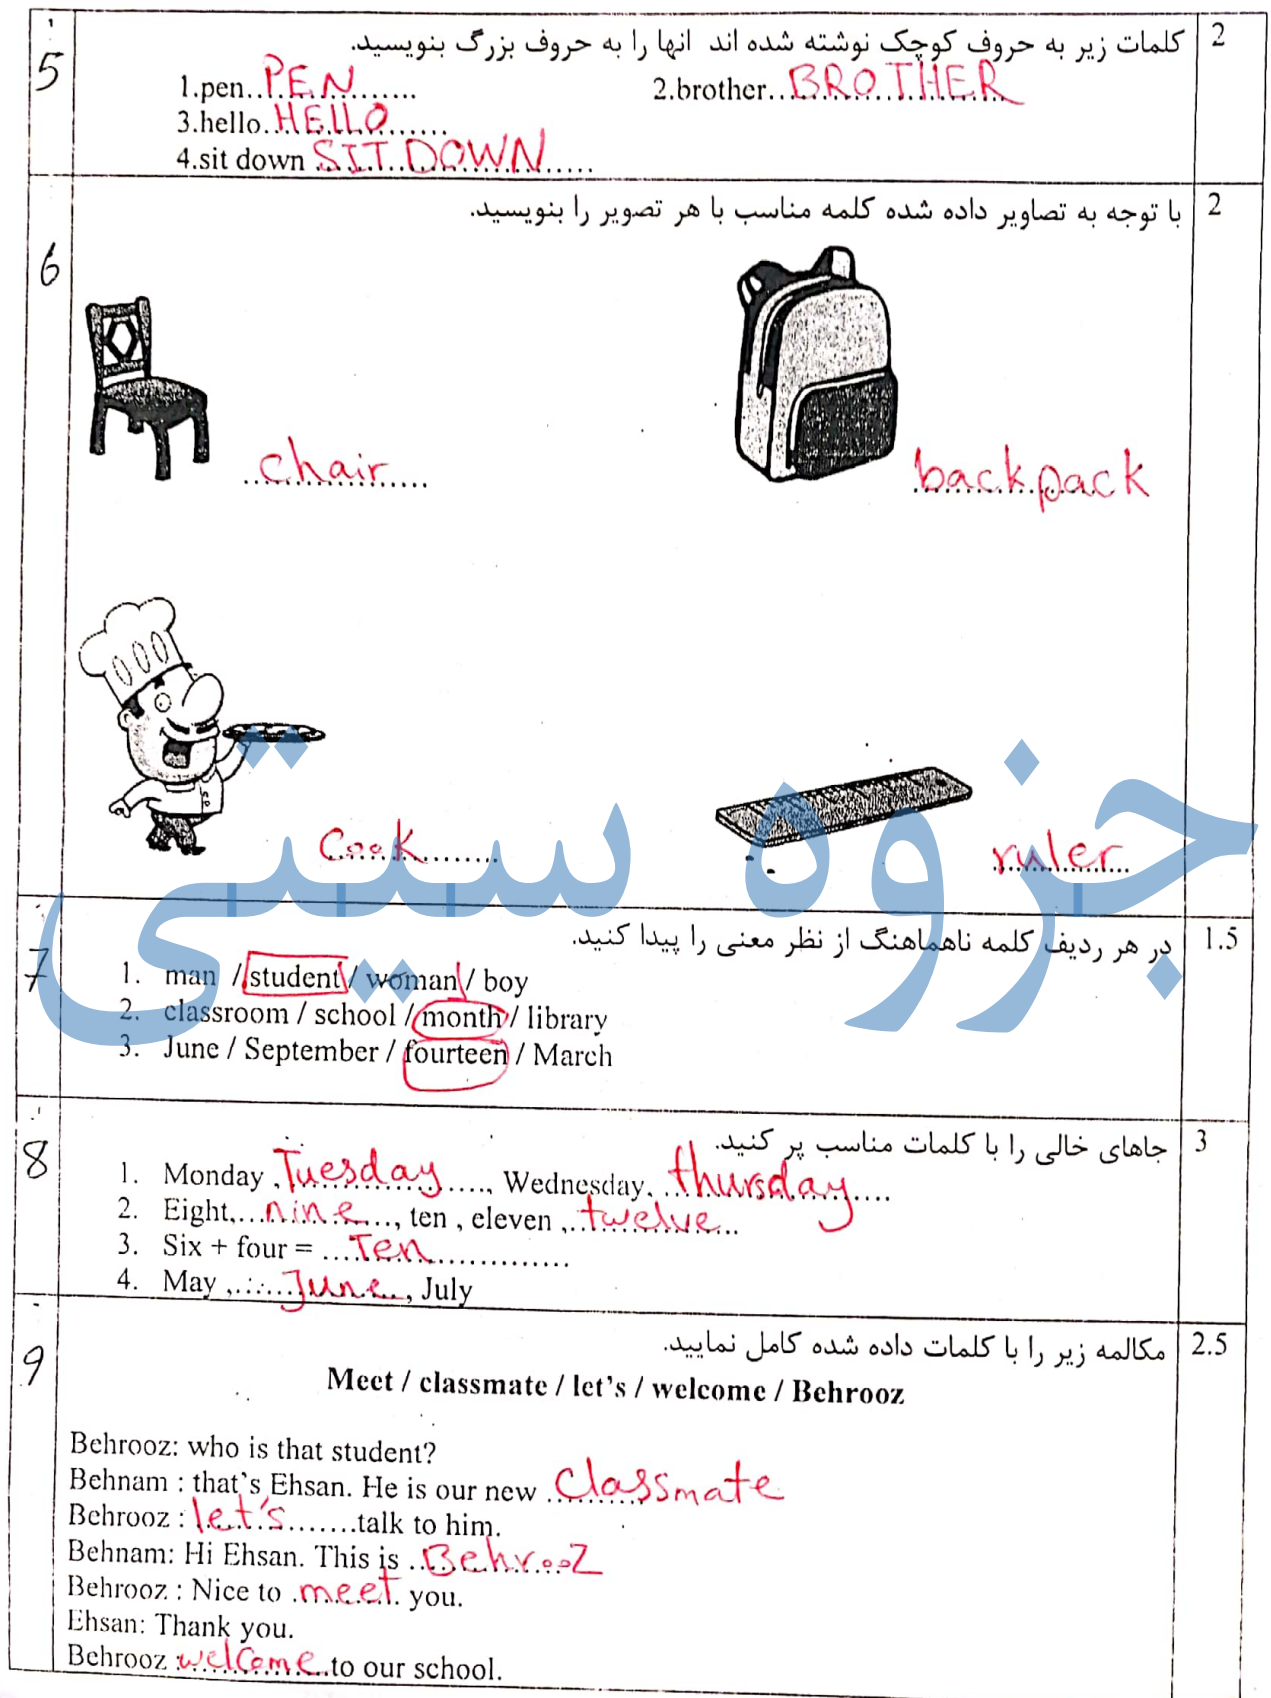 5
کلمات زیر به حروف کوچک نوشته شده اند انها را به حروف بزرگ بنویسید. 2
1.pen..PEN........... 2.brother...BROTHER
3.hello..HELLO........
4.sit down SIT DOWN......
6
با توجه به تصاویر داده شده کلمه مناسب با هر تصویر را بنویسید. 2
chair
backpack
cook
ruler
جزوه سیتی
7
در هر ردیف کلمه ناهماهنگ از نظر معنی را پیدا کنید. 1.5
1. man / student / woman / boy
2. classroom / school / month / library
3. June / September / fourteen / March
8
جاهای خالی را با کلمات مناسب پر کنید. 3
1. Monday , Tuesday ....., Wednesday, thursday....
2. Eight,...nine..., ten , eleven ,..twelve...
3. Six + four = ....Ten..............
4. May ,......June..., July
9
مکالمه زیر را با کلمات داده شده کامل نمایید. 2.5
Meet / classmate / let's / welcome / Behrooz
Behrooz: who is that student?
Behnam : that's Ehsan. He is our new classmate
Behrooz : let's.......talk to him.
Behnam: Hi Ehsan. This is ..Behrooz
Behrooz : Nice to .meet. you.
Ehsan: Thank you.
Behrooz :welcome..to our school.